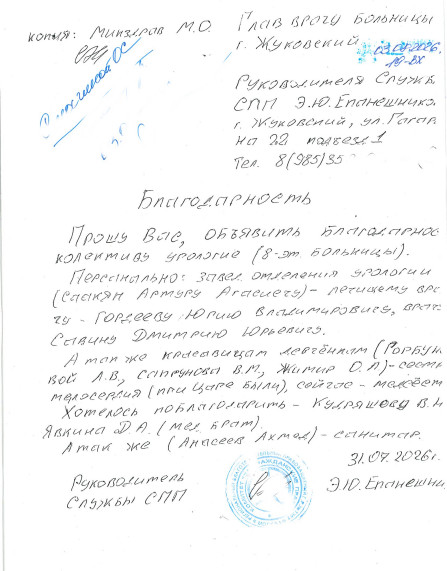 копия: Минздрав М.О.
Глав врачу Больницы
г. Жуковский
19-вх
Руководителя Служб
СПП Э.Ю. Епанешнико
г. Жуковский, ул. Гагар
на 22 подъезд 1
Тел. 8(985)35
Благодарность
Прошу Вас, объявить Благодарнос
колективу урологие (8-эт. больницы).
Персонально: завед. отделения урологии
(Саакян Артуру Агасиечу) - лечущему вра
чу - Гордееву Юрию Владимировичу, врач
Савину Дмитрию Юрьевичу.
А так же красавицам
вой Л.В, Сапрунова В.М, О.Л) - сест
милосердия (при Царе были), сейчас -
Хотелось поблагодарить - Кудряшова В.Н
Явкина Д.А. (мед. брат).
А так же (Апасеев Ахмед) - санитар.
31.07.2026г.
Руководитель
Службы СПП
Э.Ю. Епанешни